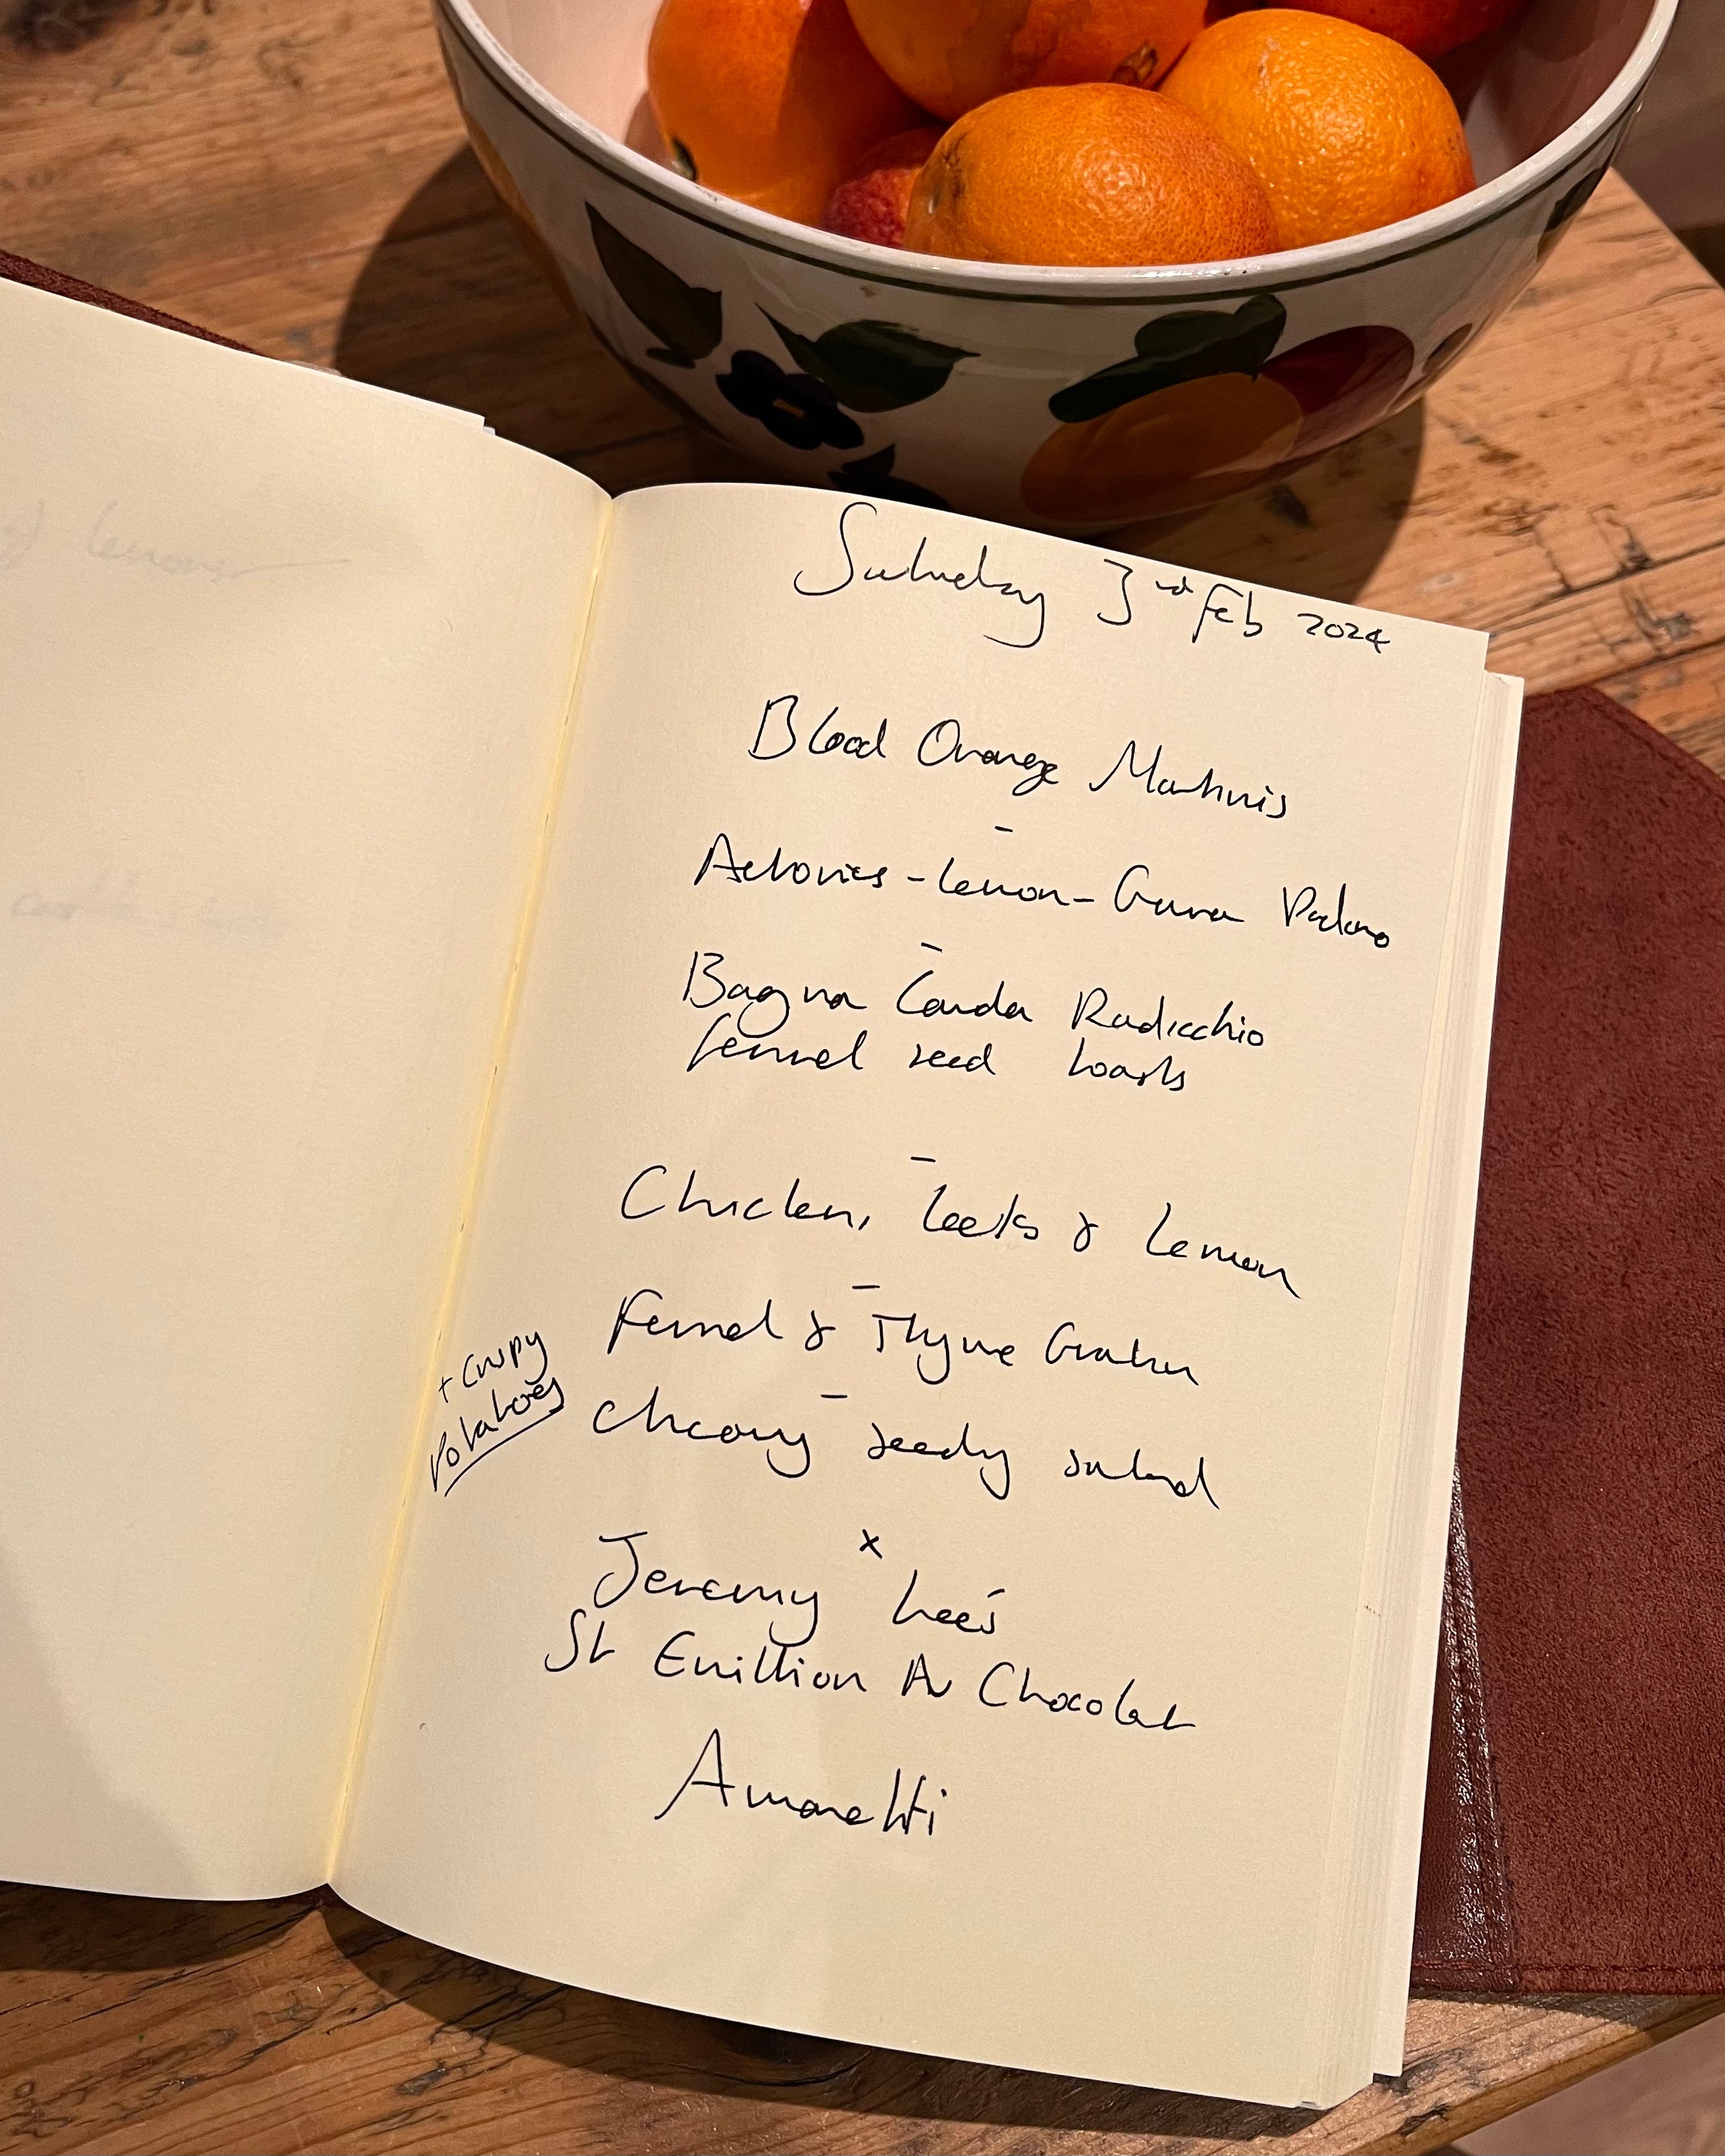 Saturday 3rd Feb 2024
Blood Orange Martinis
-
Actovies - Lemon - Grana Padano
-
Bagna Cauda Radicchio
fennel seed toasts
-
Chicken, leeks & Lemon
-
Fennel & Thyme Gratin
-
+ Crispy
Potatoes
chicory seedy salad
x
Jeremy Lee's
St Emillion Au Chocolat
Amaretti
lemon